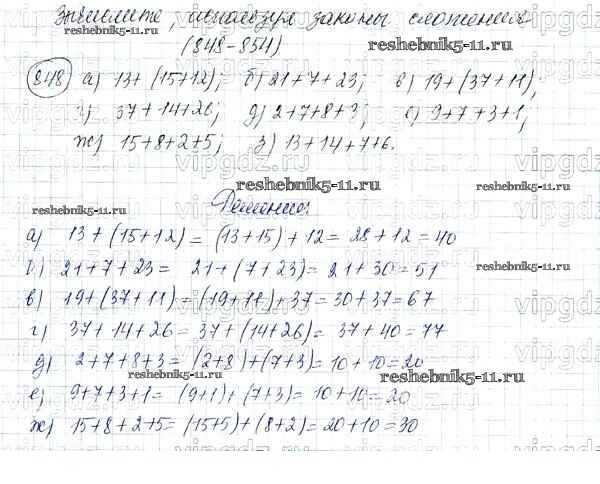 Вычислите, используя законы сложения
(848-854)
reshebnik5-11.ru
reshebnik5-11.ru
848 а) 13+(15+12); б) 21+7+23; в) 19+(37+11);
г) 37+14+26; д) 2+7+8+3; е) 9+7+3+1;
ж) 15+8+2+5; з) 13+14+7+6.
reshebnik5-11.ru
reshebnik5-11.ru
Решение:
reshebnik5-11.ru
а) 13+(15+12)=(13+15)+12=28+12=40
б) 21+7+23= 21+(7+23)=21+30=51
в) 19+(37+11)=(19+11)+37=30+37=67
г) 37+14+26=37+(14+26)= 37+40=77
д) 2+7+8+3= (2+8)+(7+3)=10+10=20
reshebnik5-11.ru
reshebnik5-11.ru
е) 9+7+3+1= (9+1)+(7+3)= 10+10=20
ж) 15+8+2+5=(15+5)+(8+2)=20+10=30
vipgdz.ru